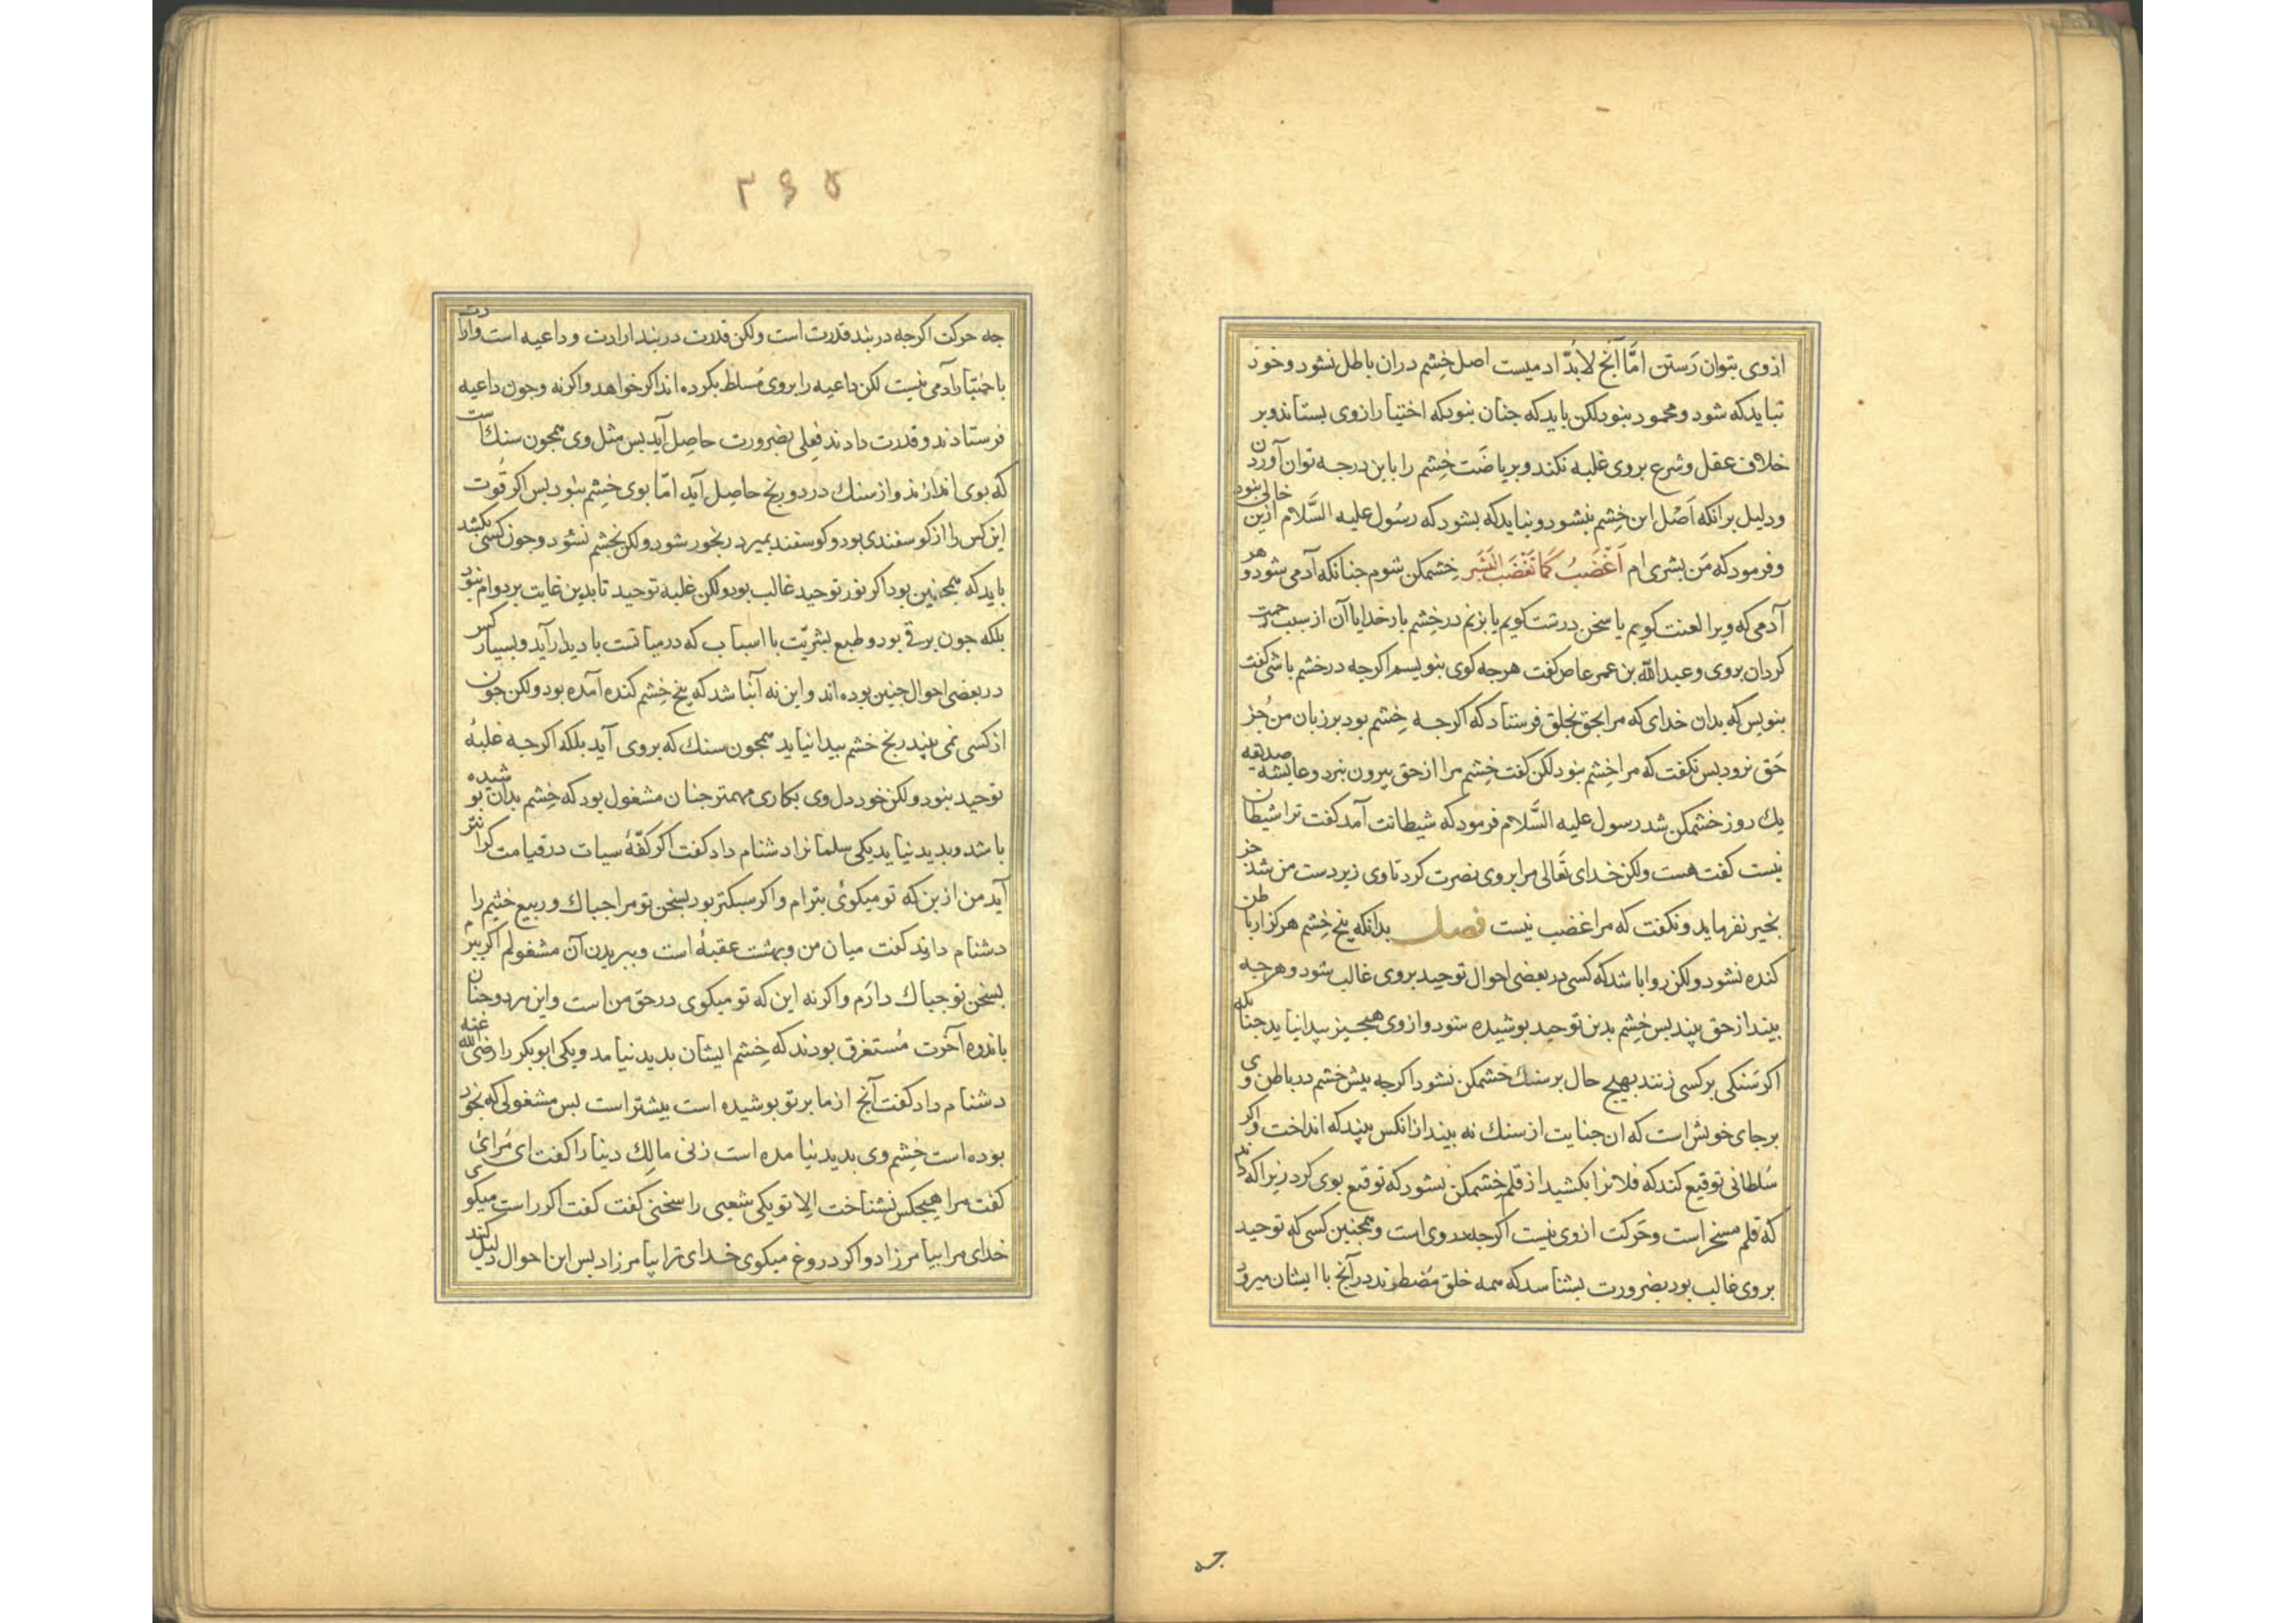 ازوی بتوان رَستن امّا آنچ لابُدّ ادمیست اصل خِشم دران باطل نشود و خوذ
نبایدکه شود و محمود بنود لکن بایدکه جنان بنودکه اختیار ازوی بستاند و بر
خلاف عقل و شرع بروی غلبه نکند و بریاضَت خِشم را باین درجه توان آوردن
و دلیل برانکه اَصْل این خِشم بنشود و نبایدکه بشود که رسُول علیه السَّلام ازین خالی بنود
و فرمود که مَن بشری ام اَغْضَبُ کَمَا تَغْضَبُ البَشَر خِشمکن شوم جنانکه آدمی شود و هر
آدمی که ویرا لعنت کویم یا سخن درشت کویم یا بزنم در خِشم بارخدایا آن از سبب رحمت
کردان بروی و عبدالله بن عمر عاص کفت هرجه کوی بنویسم اکرجه در خشم باشی کفت
بنویس که بدان خدای که مرا بحق بخلق فرستاد که اکرجه خِشم بود بر زبان من جُز
حَق نرود بس نکفت که مرا خِشم بنود لکن کفت خِشم مرا از حق بیرون نبرد و عایشه صدیقه
یك روز خشمکن شد رسول علیه السَّلام فرمود که شیطانت آمد کفت ترا شیطان
نیست کفت هست ولکن خدای تَعَالی مرا بروی نصرت کرد تا وی زیر دست من شد جز
بخیر نفرماید و نکفت که مرا غضب نیست فصل بدانکه بیخ خِشم هرکز از باطن
کنده نشود ولکن روا باشد که کسی در بعضی احوال توحید بروی غالب شود و هرجه
بیند از حق بیند بس خِشم بدین توحید بوشیده شود و ازوی هیجیز بیدا نیاید جنانکه
اکر سَنکی بر کسی زنند بهیج حال بر سنك خشمکن نشود اکرجه بیش خشم در باطن وی
بر جای خویش است که ان جنایت از سنك نه بیند از انکس بیند که انداخت و اکر
سُلطانی توقیع کند که فلانرا بکشید از قلم خِشمکن نشود که توقیع بوی کرد زیرا که داند
که قلم مسخر است و حَرکت ازوی نیست اکرجه در وی است و همجنین کسی که توحید
بروی غالب بود بضرورت بشناسد که همه خلق مُضطرند در آنچ با ایشان میرود
جه
۳۶۵
جه حرکت اکرجه در بند قدرت است ولکن قدرت در بند ارادت و داعیه است و ارادت
باختیار آدمی نیست لکن داعیه را بروی مُسلط بکرده اند اکر خواهد و اکرنه و جون داعیه
فرستادند و قدرت دادند فِعلی بضرورت حاصِل آید بس مثل وی همجون سنك است
که بوی اندازند و از سنك درد و رنج حاصل آید امّا بوی خِشم بنود بس اکر قُوت
این کس را از کوسفندی بود و کوسفند بمیرد رنجور شود ولکن بخشم نشود و جون کسی بکشد
باید که همجنین بود اکر نور توحید غالب بود ولکن غلبه توحید تا بدین غایت بر دوام بنود
بلکه جون برقی بود و طبع بشریّت با اسباب که در میانست با دیدار آید و بسیار کس
در بعضی احوال جنین بوده اند و این نه آنباشد که بیخ خِشم کنده آمده بود ولکن جون
از کسی نمی بیند رنج خشم بیدا نیاید همجون سنك که بروی آید بلکه اکرجه غلبهٔ
توحید بنود ولکن خود دل وی بکاری مهمتر جنان مشغول بود که خِشم بدان بوشیده
باشد و بدید نیاید یکی سلمانرا دشنام داد کفت اکر کفّهٔ سیات در قیامت کرانتر
آید من ازین که تو میکوئی بترام و اکر سبکتر بود بسخن تو مرا جباك و ربیع خثیم را
دشنام دادند کفت میان من و بهشت عقبهٔ است و ببریدن آن مشغولم اکر ببرم
بسخن تو جباك دارَم و اکرنه این که تو میکوی در حق من است و این مرد و جنان
باندوه آخرت مُستغرق بودند که خِشم ایشان بدید نیامد و یکی ابوبکر را رضی الله عنه
دشنام داد کفت آنچ از ما بر تو بوشیده است بیشتر است بس مشغولی که بخود
بوده است خِشم وی بدید نیامده است زنی مالك دینار را کفت ای مُرائ
کفت مرا هیجکس نشناخت الا تو یکی شعبی را سخنی کفت کفت اکر راست میکوی
خدای مرا بیامرزاد و اکر دروغ میکوی خدای ترا بیامرزاد بس این احوال دلیل کند